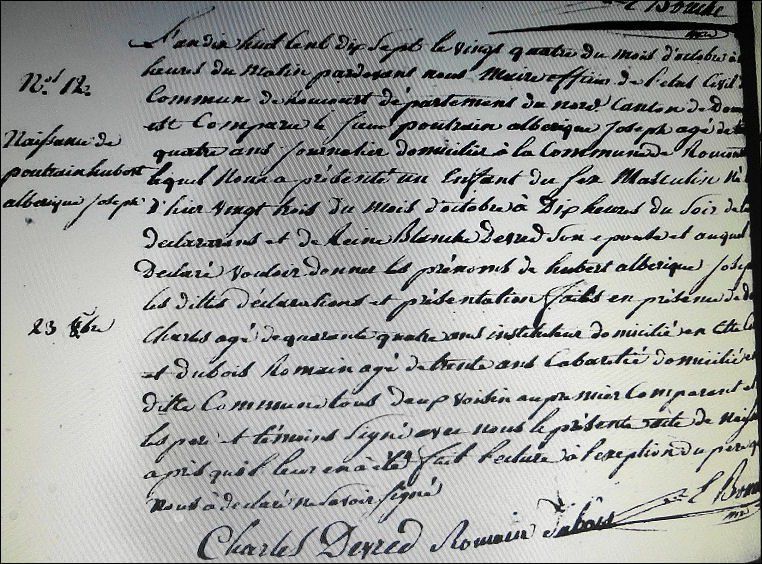 L Bouche
L'an dix huit cent dix sept le vingt quatre du mois d'octobre à
heures du matin pardevant nous Maire officier de l'etat Civil
Commune de departement du nord Canton de
est Comparu le sieur poutrain alberique Joseph agé de
quatre ans Journalier domicilié à la Commune de
lequel Nous a présenté un Enfant du sex Masculin Né
d'hier vingt trois du mois d'octobre à Dix heures du Soir de
declarant et de Reine Blanche Devred son epouse et auquel
Declaré vouloir donner les prénoms de hubert alberique Joseph
les dittes déclarations et présentation faits en présence de
Charles agé de quarante quatre ans instituteur domicilié en
et dubois Romain agé de trente ans Cabaretié domicilié
ditte Commune tous deux voisin au premier Comparant et
les pere et témoins Signé avec nous le présente acte de
apris quil leur en à été fait lecture à l'exeption du pere
Nous à déclaré ne savoir signé
Charles Devred Romain Dubois
N.º 12
Naissance de
poutrain hubert
alberique Joseph
23 8bre